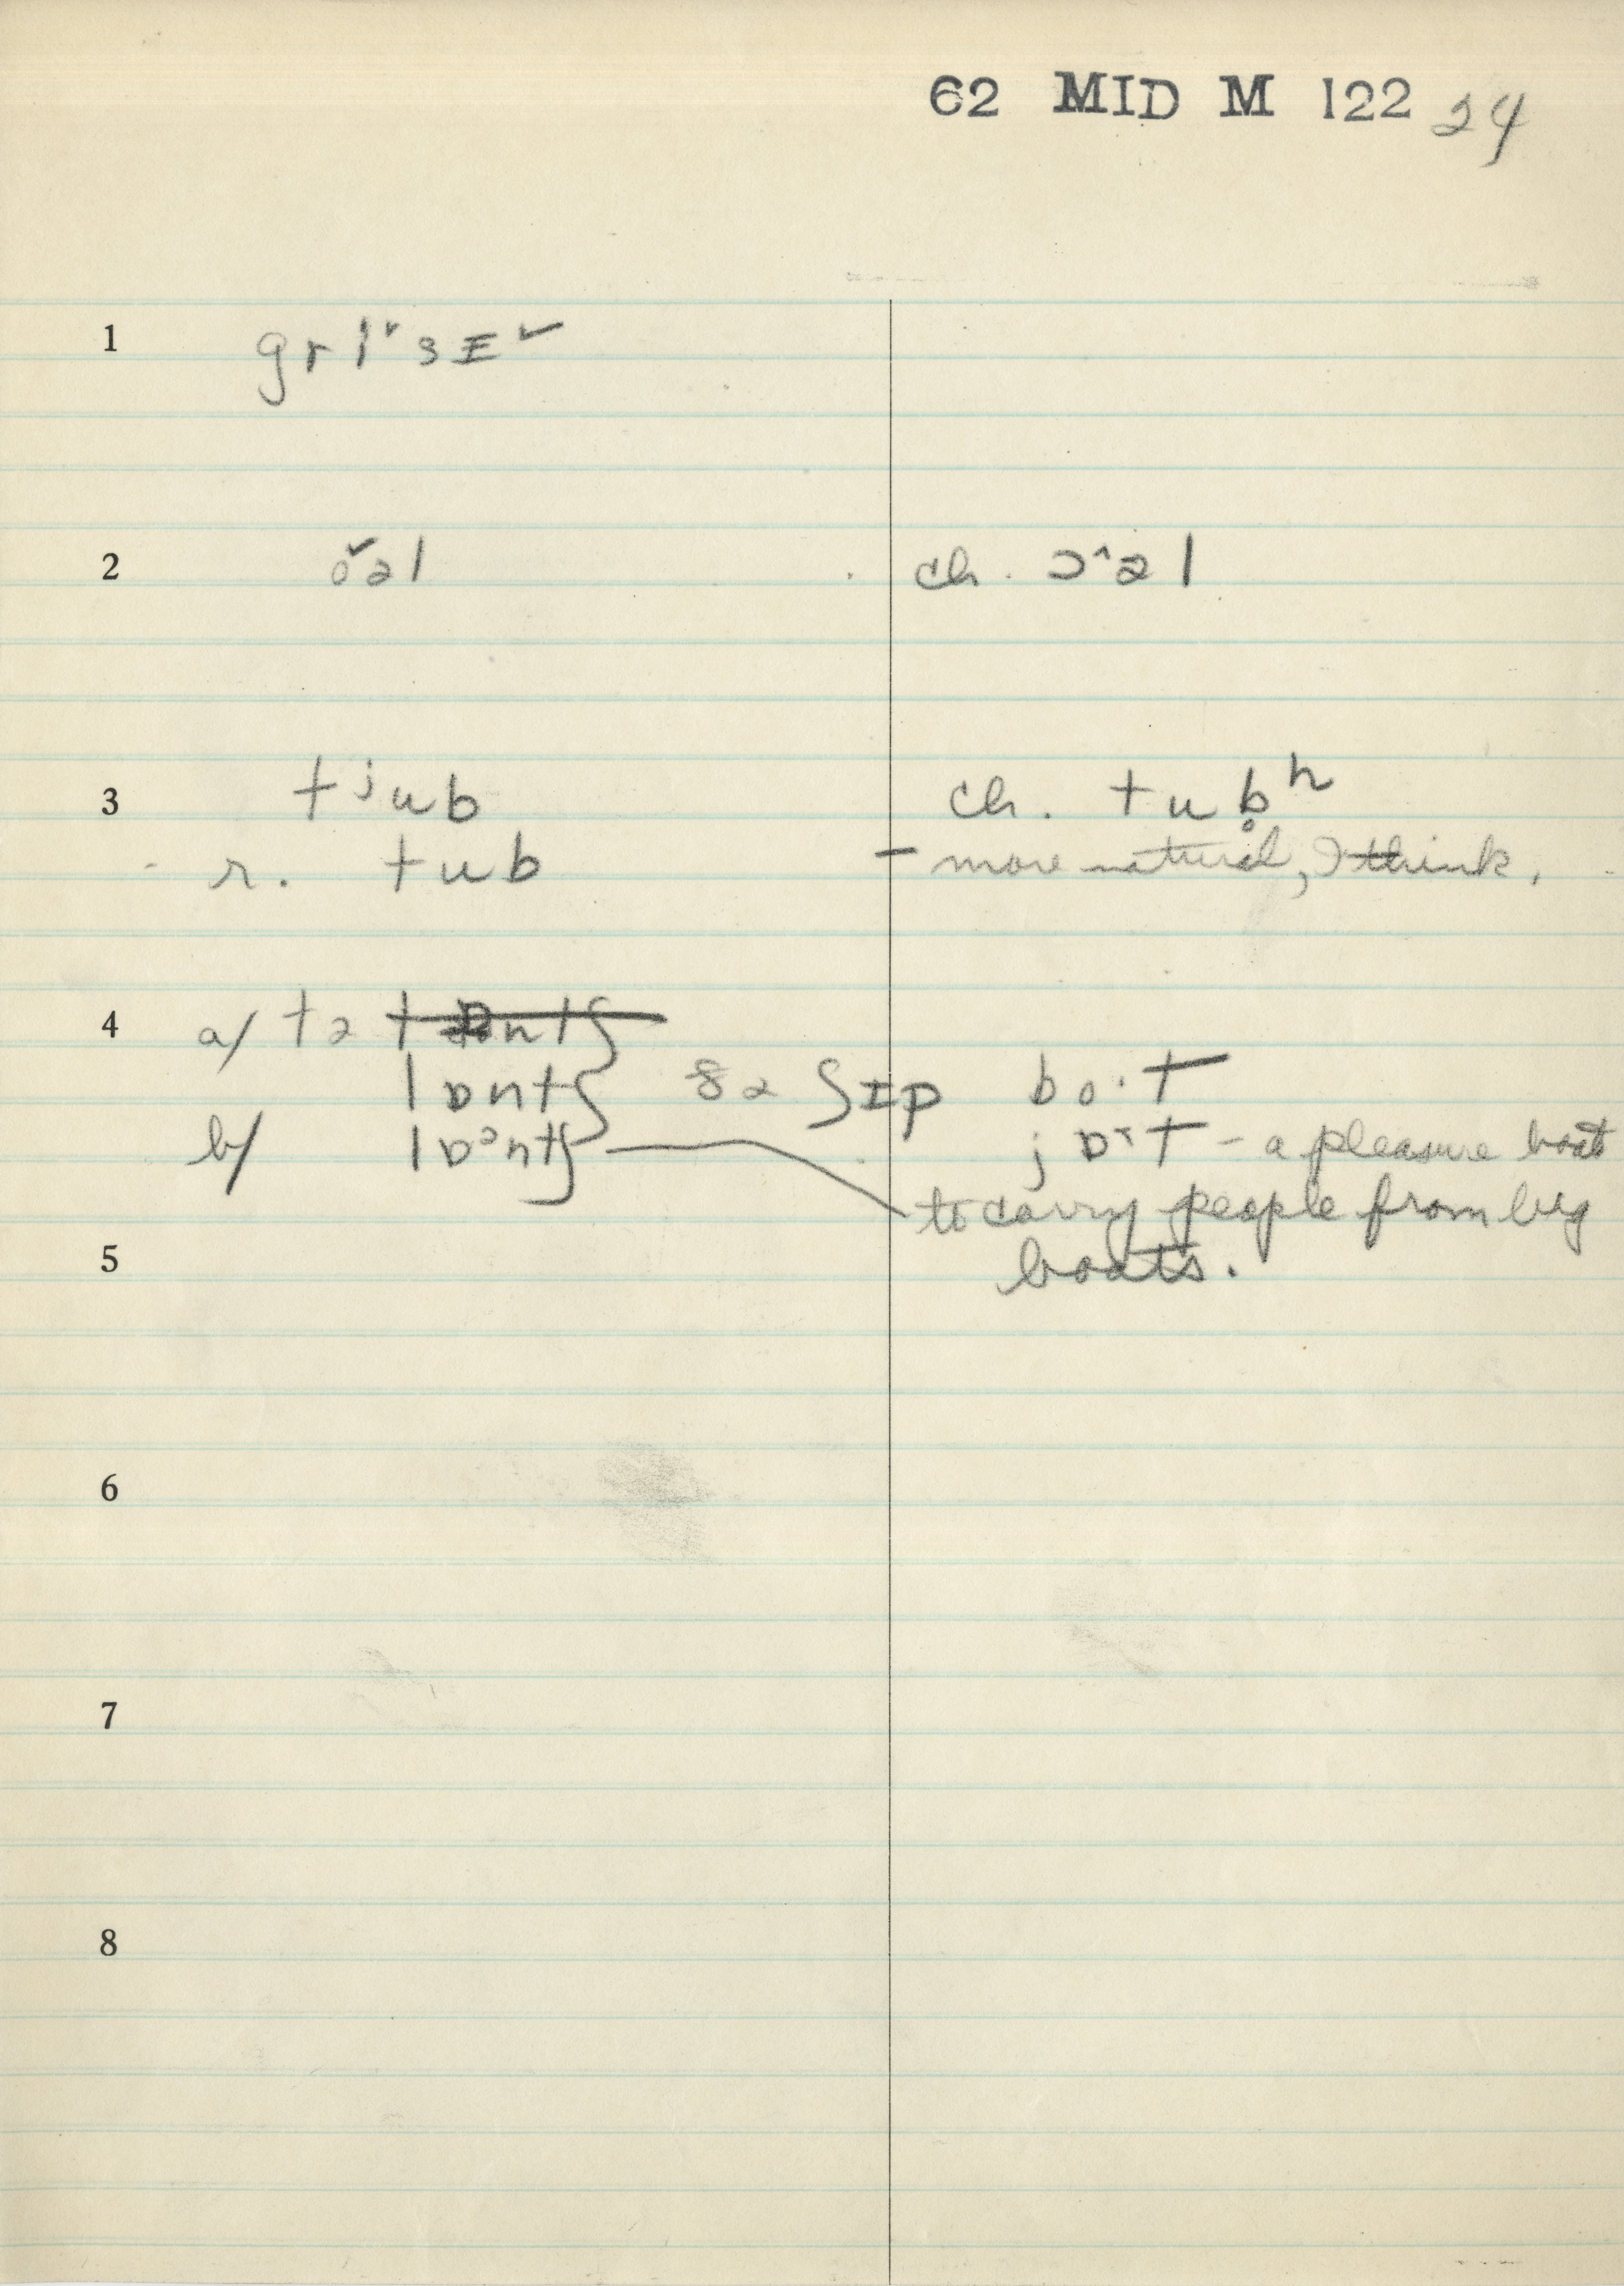 62 MID M 122 24
1 gri˅sɪ˅
2 o˅əl ch. ɔ^əl
3 tʲub ch. tub̥ʰ
r. tub – more natural, I think.
4 a/ tə
lɒntʃ ðə ʃɪp bo·t
b/ lɒᵓntʃ jɒ˔t – a pleasure boat
to carry people from big
5 boats.
6
7
8